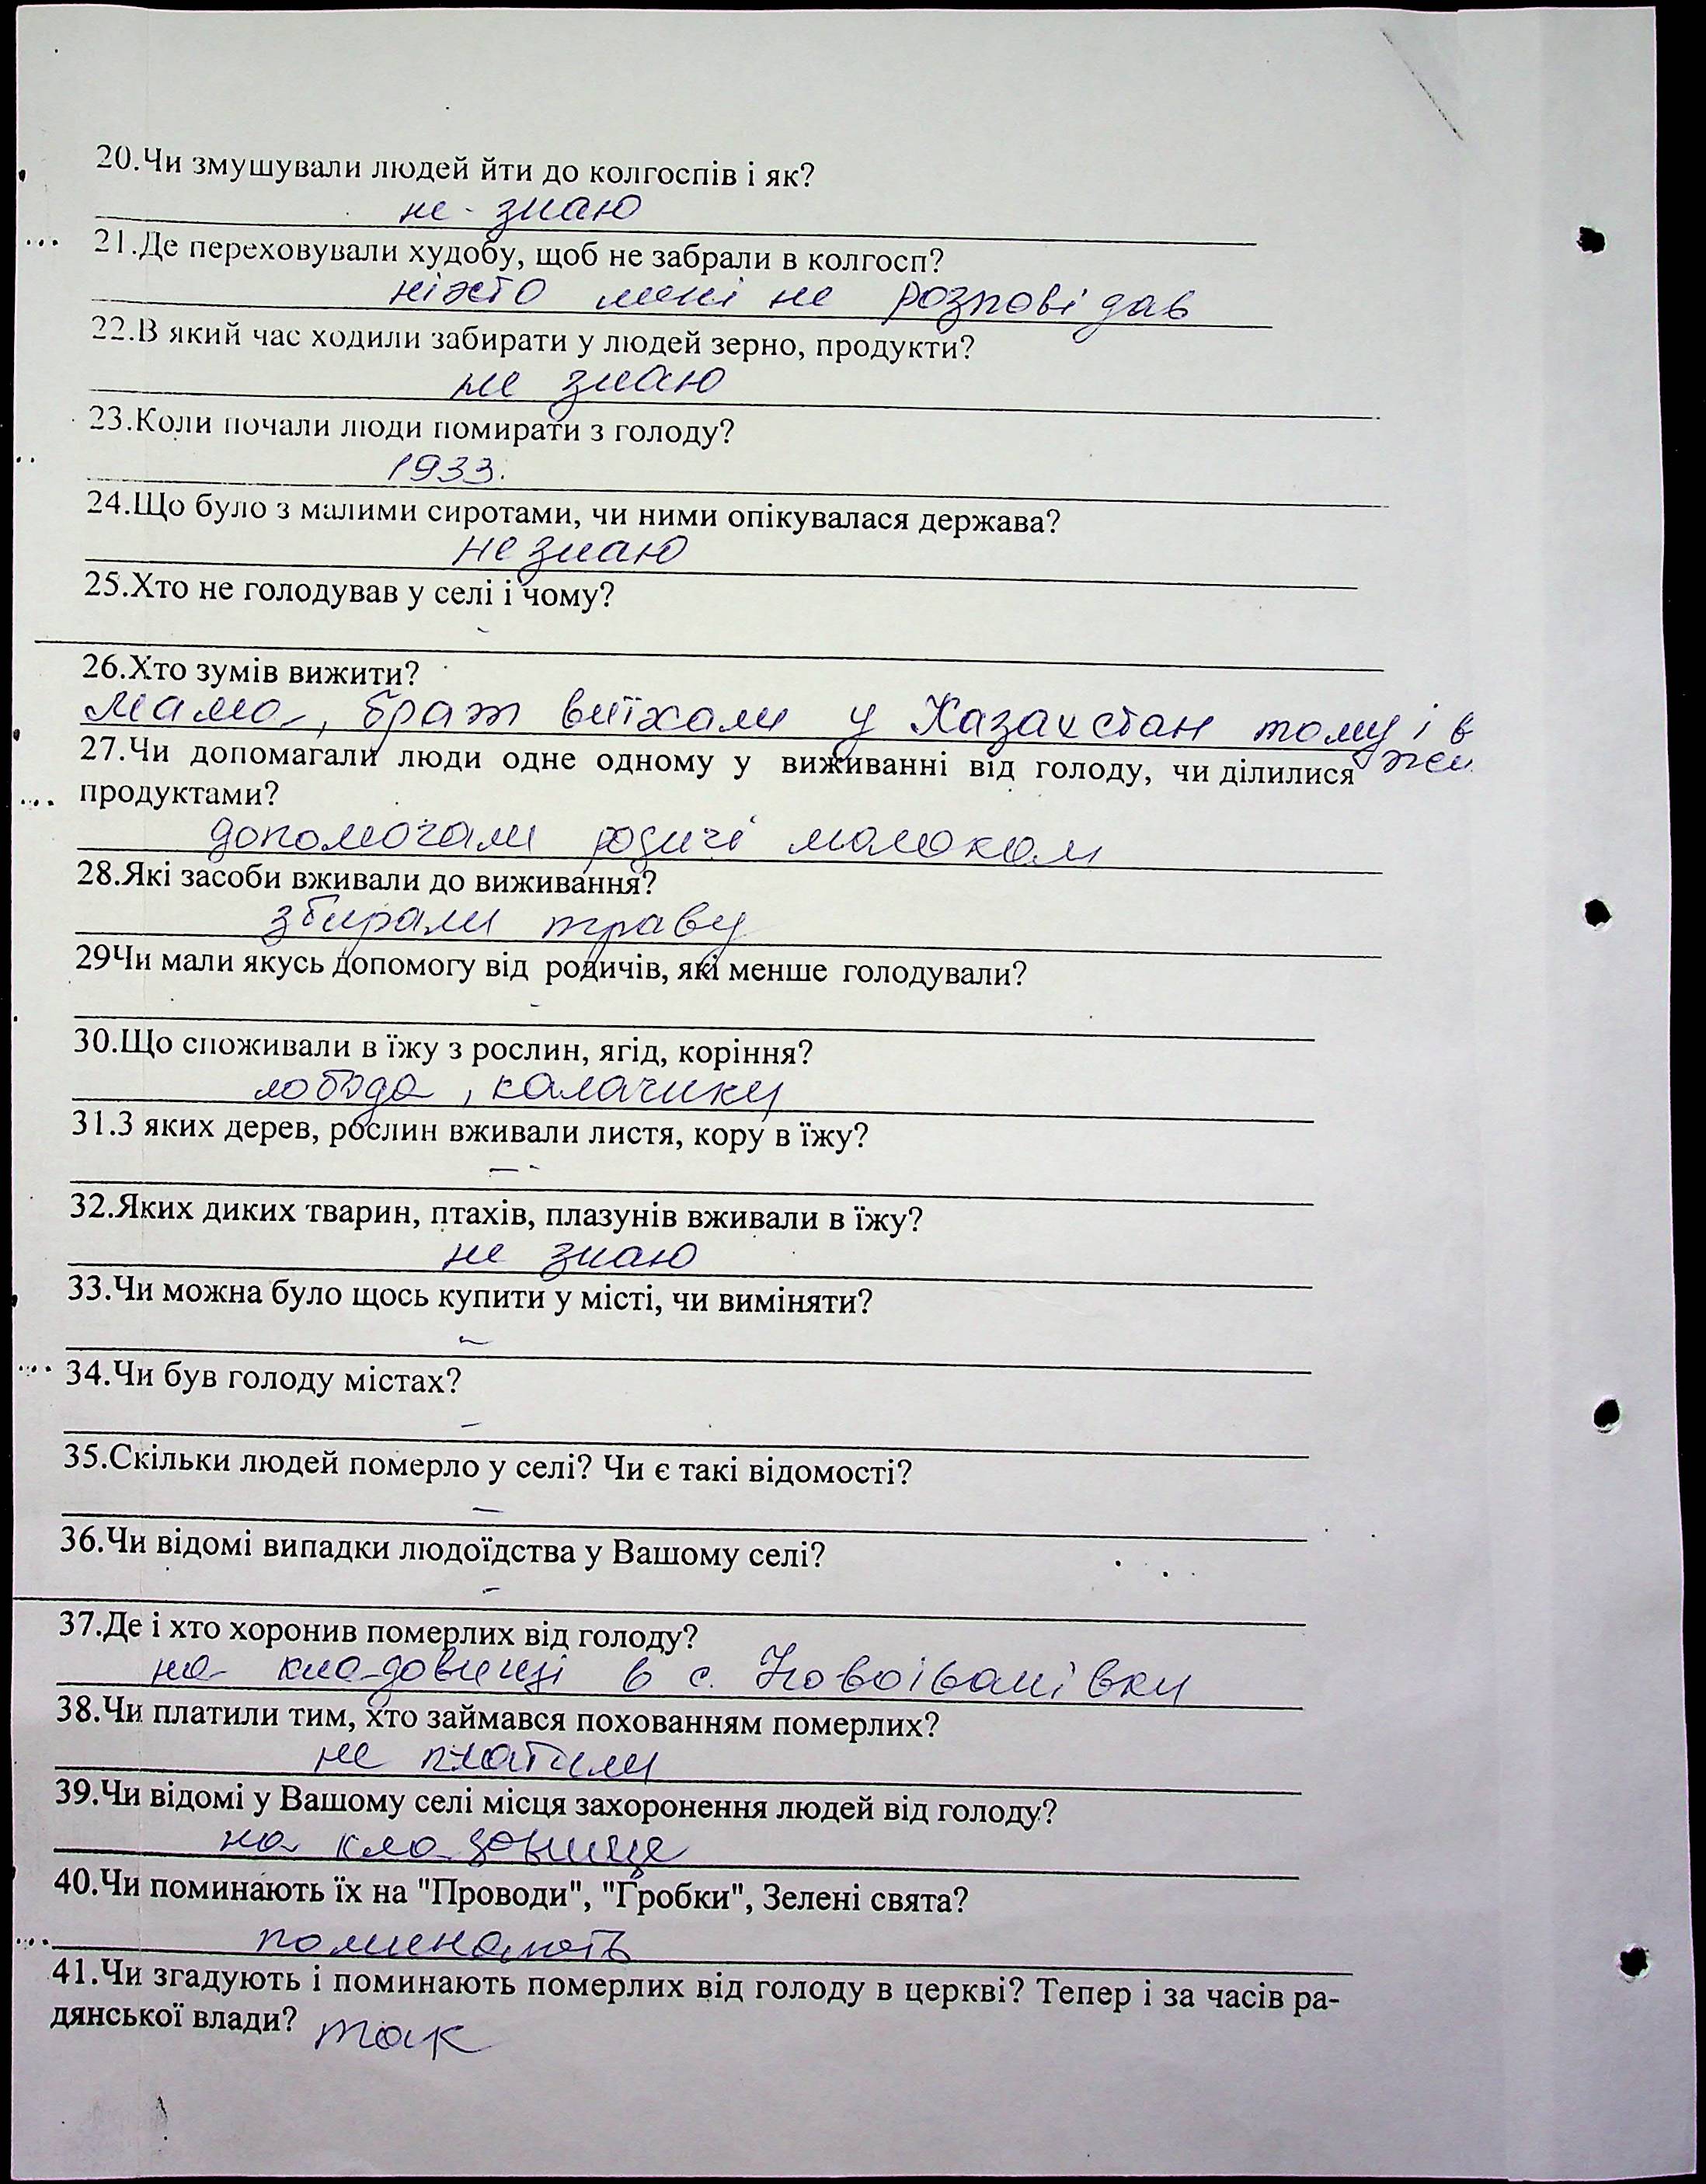 20.Чи змушували людей йти до колгоспів і як?
не знаю
21.Де переховували худобу, щоб не забрали в колгосп?
ніхто мені не розповідав
22.В який час ходили забирати у людей зерно, продукти?
не знаю
23.Коли почали люди помирати з голоду?
1933.
24.Що було з малими сиротами, чи ними опікувалася держава?
не знаю
25.Хто не голодував у селі і чому?
-
26.Хто зумів вижити?
мама, брат виїхали у Казахстан тому і в
жи
27.Чи допомагали люди одне одному у виживанні від голоду, чи ділилися
продуктами?
допомогали родичі молоком
28.Які засоби вживали до виживання?
збирали траву
29Чи мали якусь допомогу від родичів, які менше голодували?
-
30.Що споживали в їжу з рослин, ягід, коріння?
лобода, калачики
31.З яких дерев, рослин вживали листя, кору в їжу?
-
32.Яких диких тварин, птахів, плазунів вживали в їжу?
не знаю
33.Чи можна було щось купити у місті, чи виміняти?
-
34.Чи був голоду містах?
-
35.Скільки людей померло у селі? Чи є такі відомості?
-
36.Чи відомі випадки людоїдства у Вашому селі?
-
37.Де і хто хоронив померлих від голоду?
на кладовищі в с. Новоіванівки
38.Чи платили тим, хто займався похованням померлих?
не платили
39.Чи відомі у Вашому селі місця захоронення людей від голоду?
на кладовище
40.Чи поминають їх на "Проводи", "Гробки", Зелені свята?
поминають
41.Чи згадують і поминають померлих від голоду в церкві? Тепер і за часів ра-
дянської влади? так